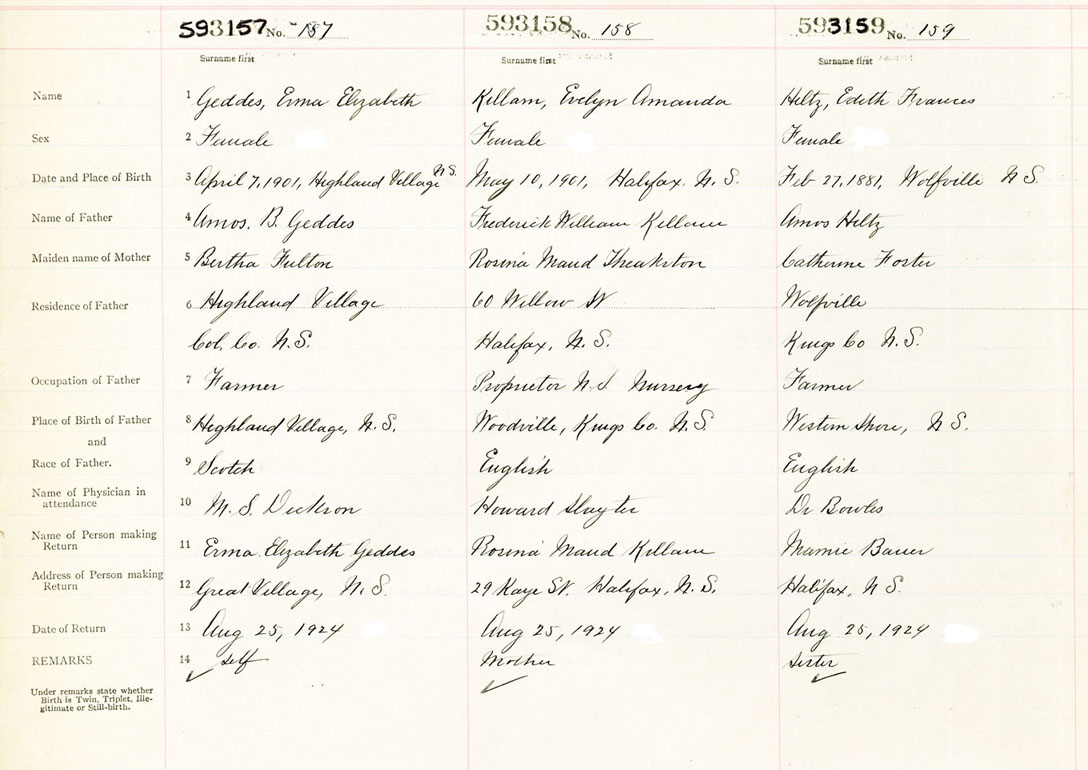 593157 No. 157 593158 No. 158 593159 No. 159
Surname first Surname first Surname first
Name 1 Geddes, Erma Elizabeth Killam, Evelyn Amanda Hiltz, Edith Frances
Sex 2 Female Female Female
Date and Place of Birth 3 April 7, 1901, Highland Village N.S. May 10, 1901, Halifax. N.S. Feb 27, 1881, Wolfville N S.
Name of Father 4 Amos. B. Geddes Frederick William Killam Amos Hiltz
Maiden name of Mother 5 Bertha Fulton Rosina Maud Theakston Catherine Foster
Residence of Father 6 Highland Village 60 Willow St Wolfville
Col. Co. N.S. Halifax, N.S. Kings Co N.S.
Occupation of Father 7 Farmer Proprietor N.S Nursery Farmer
Place of Birth of Father 8 Highland Village, N.S. Woodville, Kings Co. N.S. Western Shore, N S.
and
Race of Father. 9 Scotch English English
Name of Physician in
attendance 10 M. S. Dickson Howard Slayter Dr Bowles
Name of Person making
Return 11 Erma Elizabeth Geddes Rosina Maud Killam Mamie Bauer
Address of Person making
Return 12 Great Village, N.S. 29 Kaye St. Halifax, N.S. Halifax, N S.
Date of Return 13 Aug 25, 1924 Aug 25, 1924 Aug 25, 1924
REMARKS 14 Self Mother Sister
Under remarks state whether
Birth is Twin, Triplet, Ille-
gitimate or Still-birth.